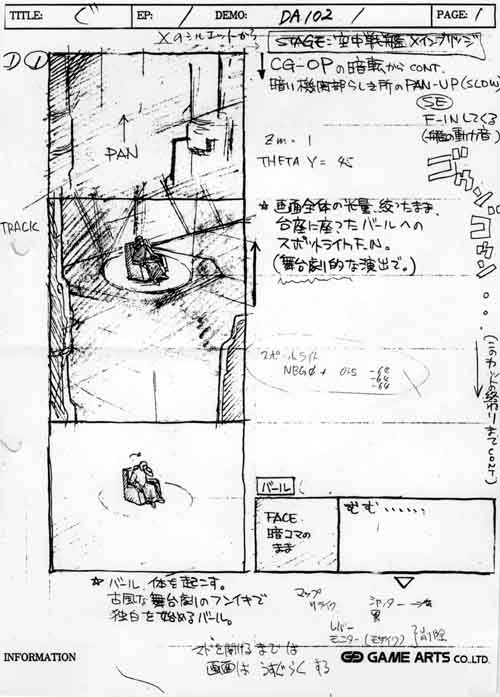 TITLE: ぐ EP: / DEMO: DA102 / PAGE: 1
Xのシルエットから
STAGE:空中戦艦Xインブリッジ
D ①
CG-OPの暗転からCONT.
暗い機関部らしき所のPAN-UP(SLOW)
SE
F-INしてくる
(艦の動力音)
ゴウンゴウン・・・
(このカットの終わりまでCONT)
PAN
Zm. 1
THETA Y = 45
TRACK
☆ 画面全体の光量、絞ったまま、
台座に座ったバールへの
スポットライトF.IN。
(舞台劇的な演出で。)
スポットライト
NBG0+ 015 -64
-64
-64
バール
FACE.
暗コマの
まま
むむ・・・・・・
☆ バール、体を起こす。
古風な舞台劇のフンイキで
独白を始めるバール。
マップ
シャッター→
黒
レバー
モニター(モザイク)
マドを開けるまでは
画面はうすぐらくする
INFORMATION
GAME ARTS CO.,LTD.